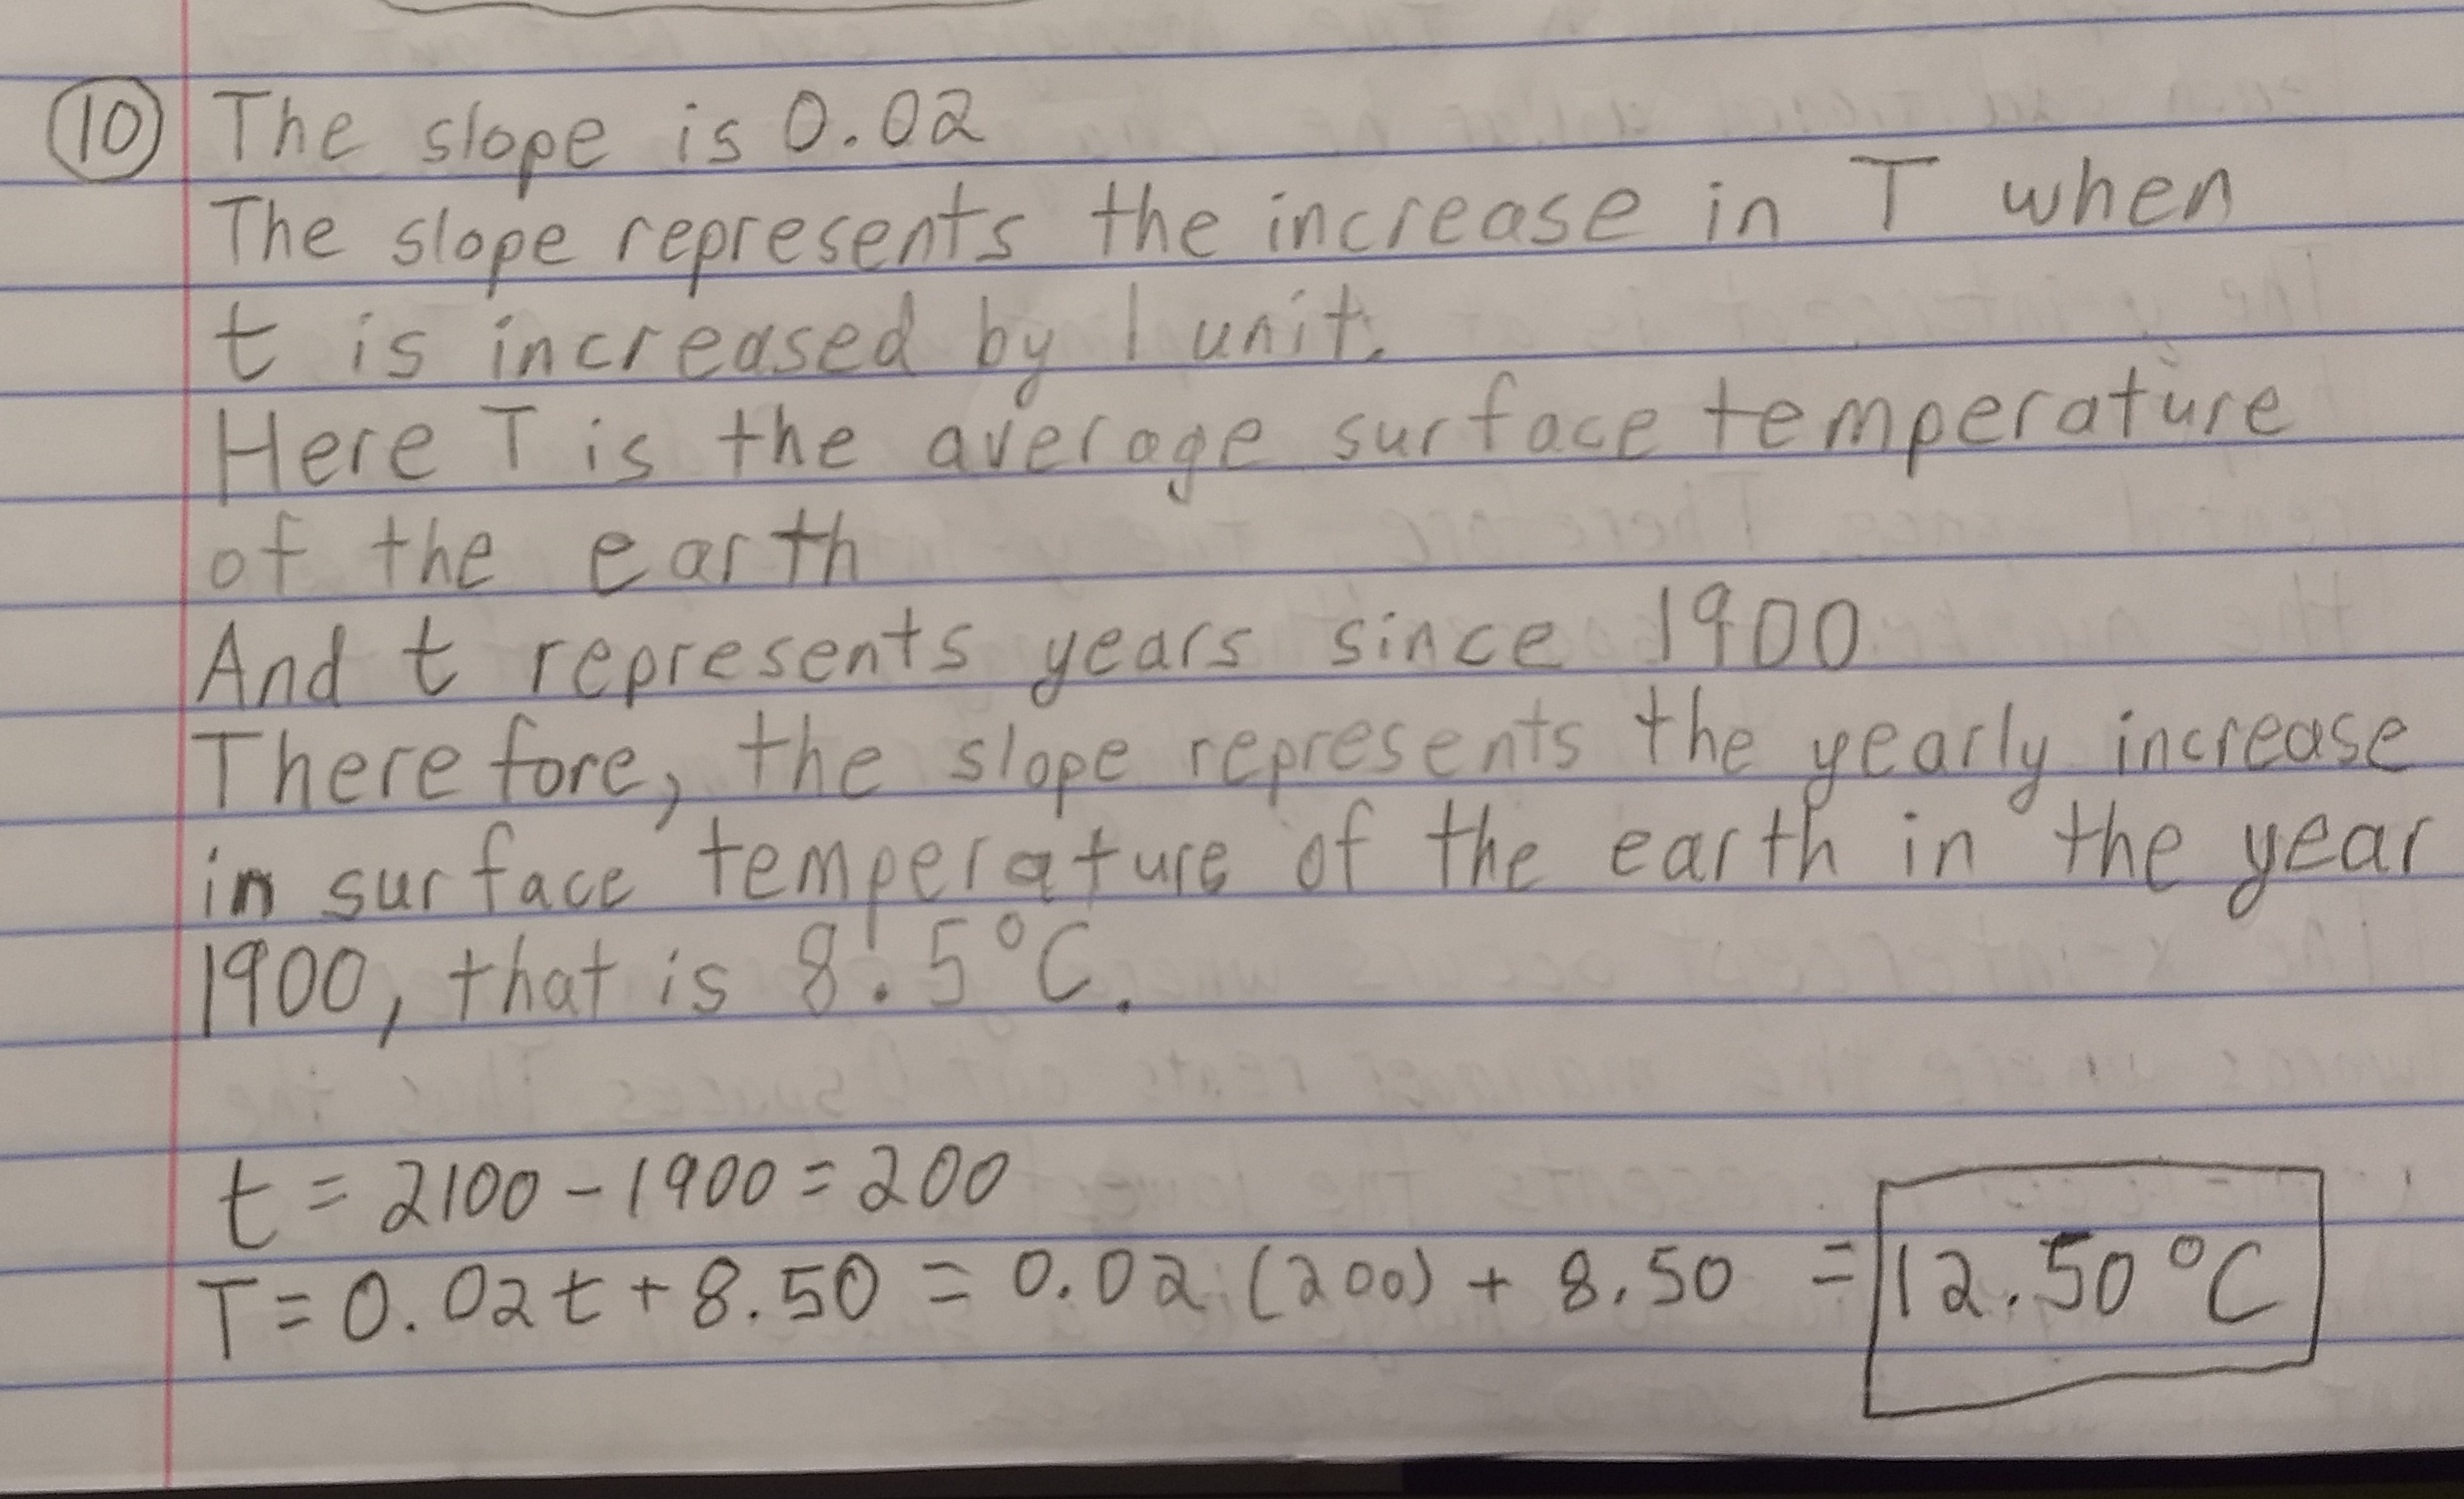 10 The slope is 0.02
The slope represents the increase in T when
t is increased by 1 unit.
Here T is the average surface temperature
of the earth
And t represents years since 1900
Therefore, the slope represents the yearly increase
in surface temperature of the earth in the year
1900, that is 8.5°C.
t = 2100 - 1900 = 200
T = 0.02t + 8.50 = 0.02 (200) + 8.50 = 12.50°C